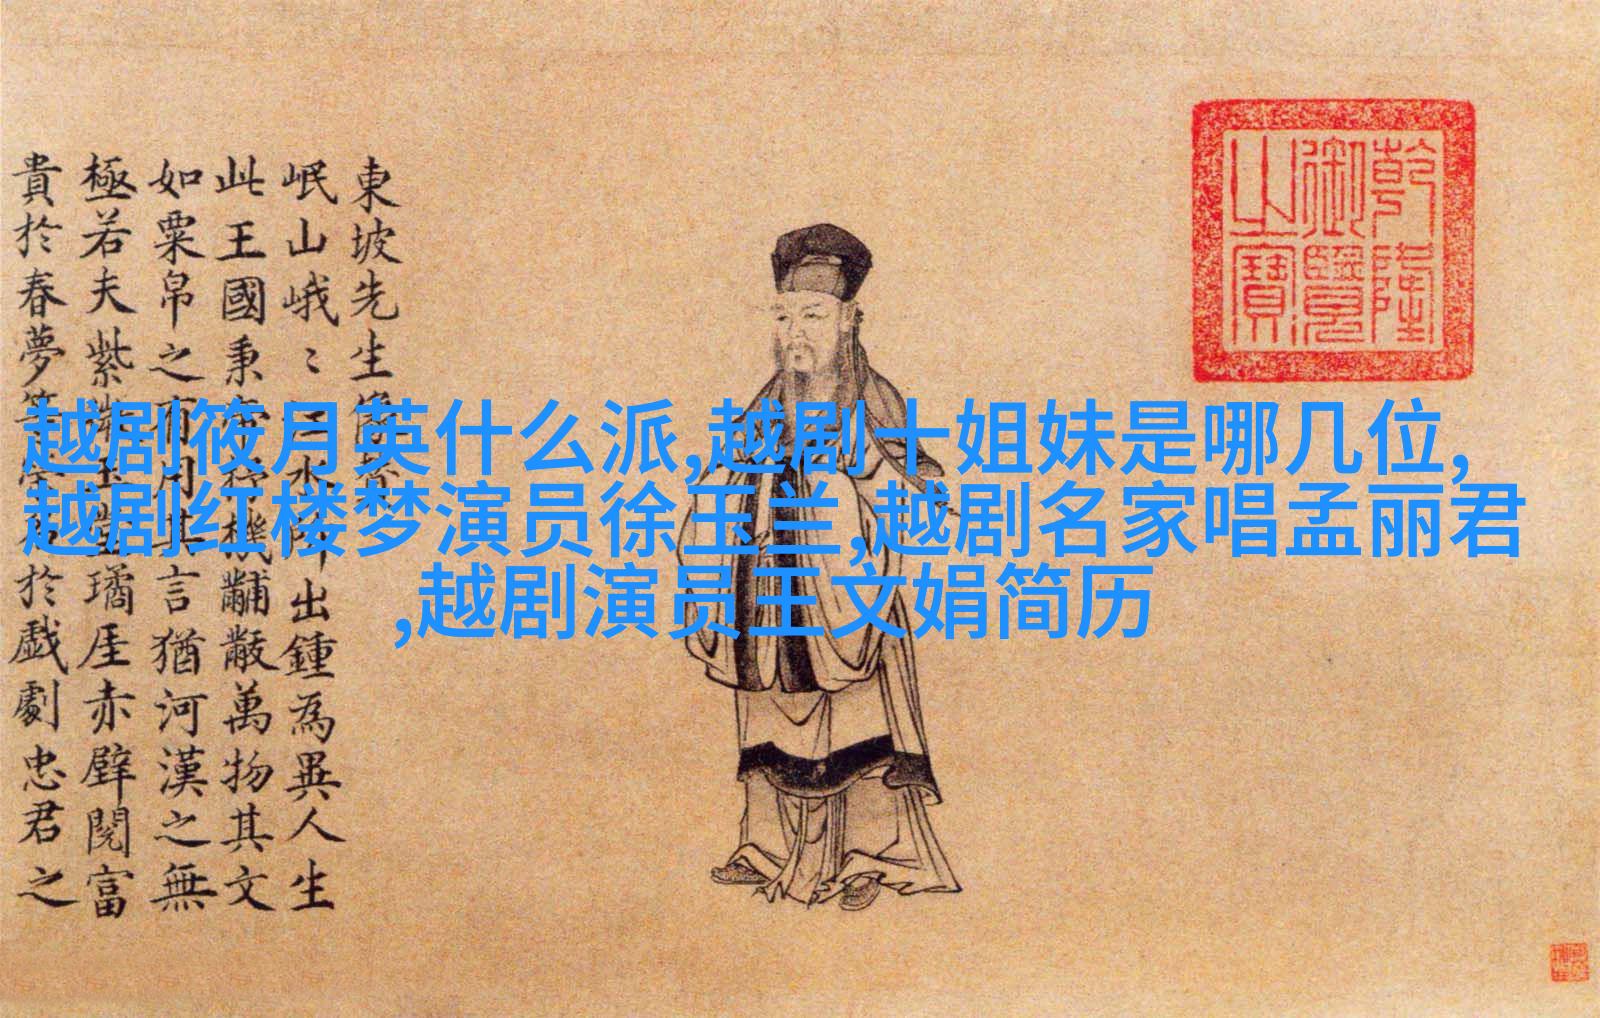 越剧筱月英什么派,越剧十姐妹是哪几位,
越剧红楼梦演员徐玉兰,越剧名家唱孟丽君
,越剧演员王文娟简历
乾隆
御覽
之寶
東坡先生像
岷山峨〻水出鍾為異人生
此王國秉機黼黻萬物其文
如粟帛之有用其言猶河漢之無
極若夫紫玉璚厓赤壁閱富
貴於春夢等於戲劇忠君之